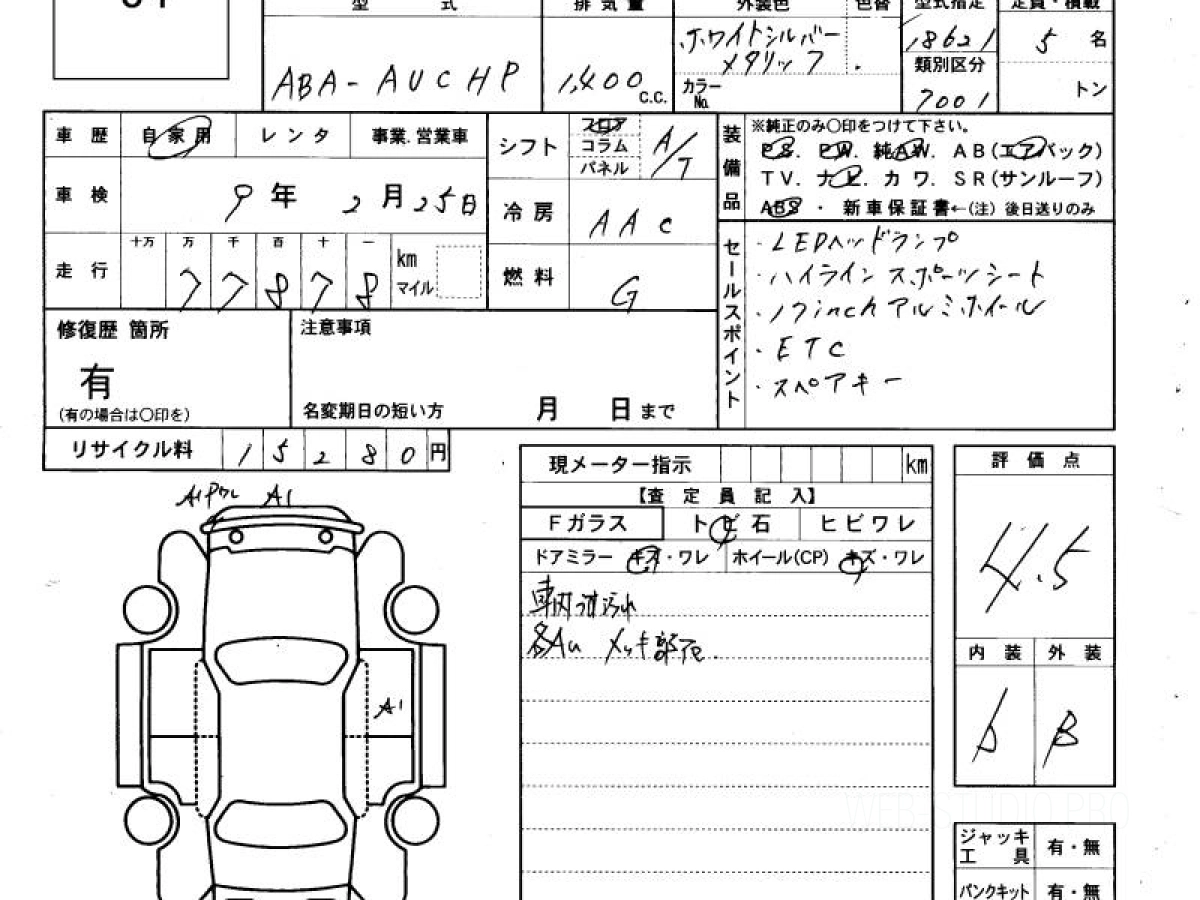 型 式
排 気 量
外装色
色替
型式指定
定員・積載
ABA-AUCHP
1,400 c.c.
ホワイトシルバー
メタリック
カラー
No.
18621
類別区分
7001
5 名
トン
車 歴 自 家 用 レ ン タ 事業.営業車
シフト フロア
コラム
パネル
A/T
車 検 9 年 2 月 25 日
冷 房 AAC
走 行 十万 万 千 百 十 一
7 7 8 7 8
km
マイル
燃 料 G
装備品
※純正のみ〇印をつけて下さい。
PS. PW. 純AW. AB(エアバック)
TV. ナビ. カワ. SR(サンルーフ)
ABS ・ 新車保証書←(注) 後日送りのみ
セールスポイント
・LEDヘッドランプ
・ハイライン スポーツシート
・17inchアルミホイール
・ETC
・スペアキー
修復歴 箇所
有
(有の場合は〇印を)
注意事項
名変期日の短い方 月 日 まで
リサイクル料 1 5 2 8 0 円
現メーター指示 km
【査 定 員 記 入】
Fガラス ト ビ 石 ヒ ビ ワ レ
ドアミラー キズ・ワレ ホイール(CP) キズ・ワレ
評 価 点
4.5
内 装 外 装
B
A1
A1
ジャッキ
工 具
有・無
パンクキット 有・無
WEB-STUDIO.PRO